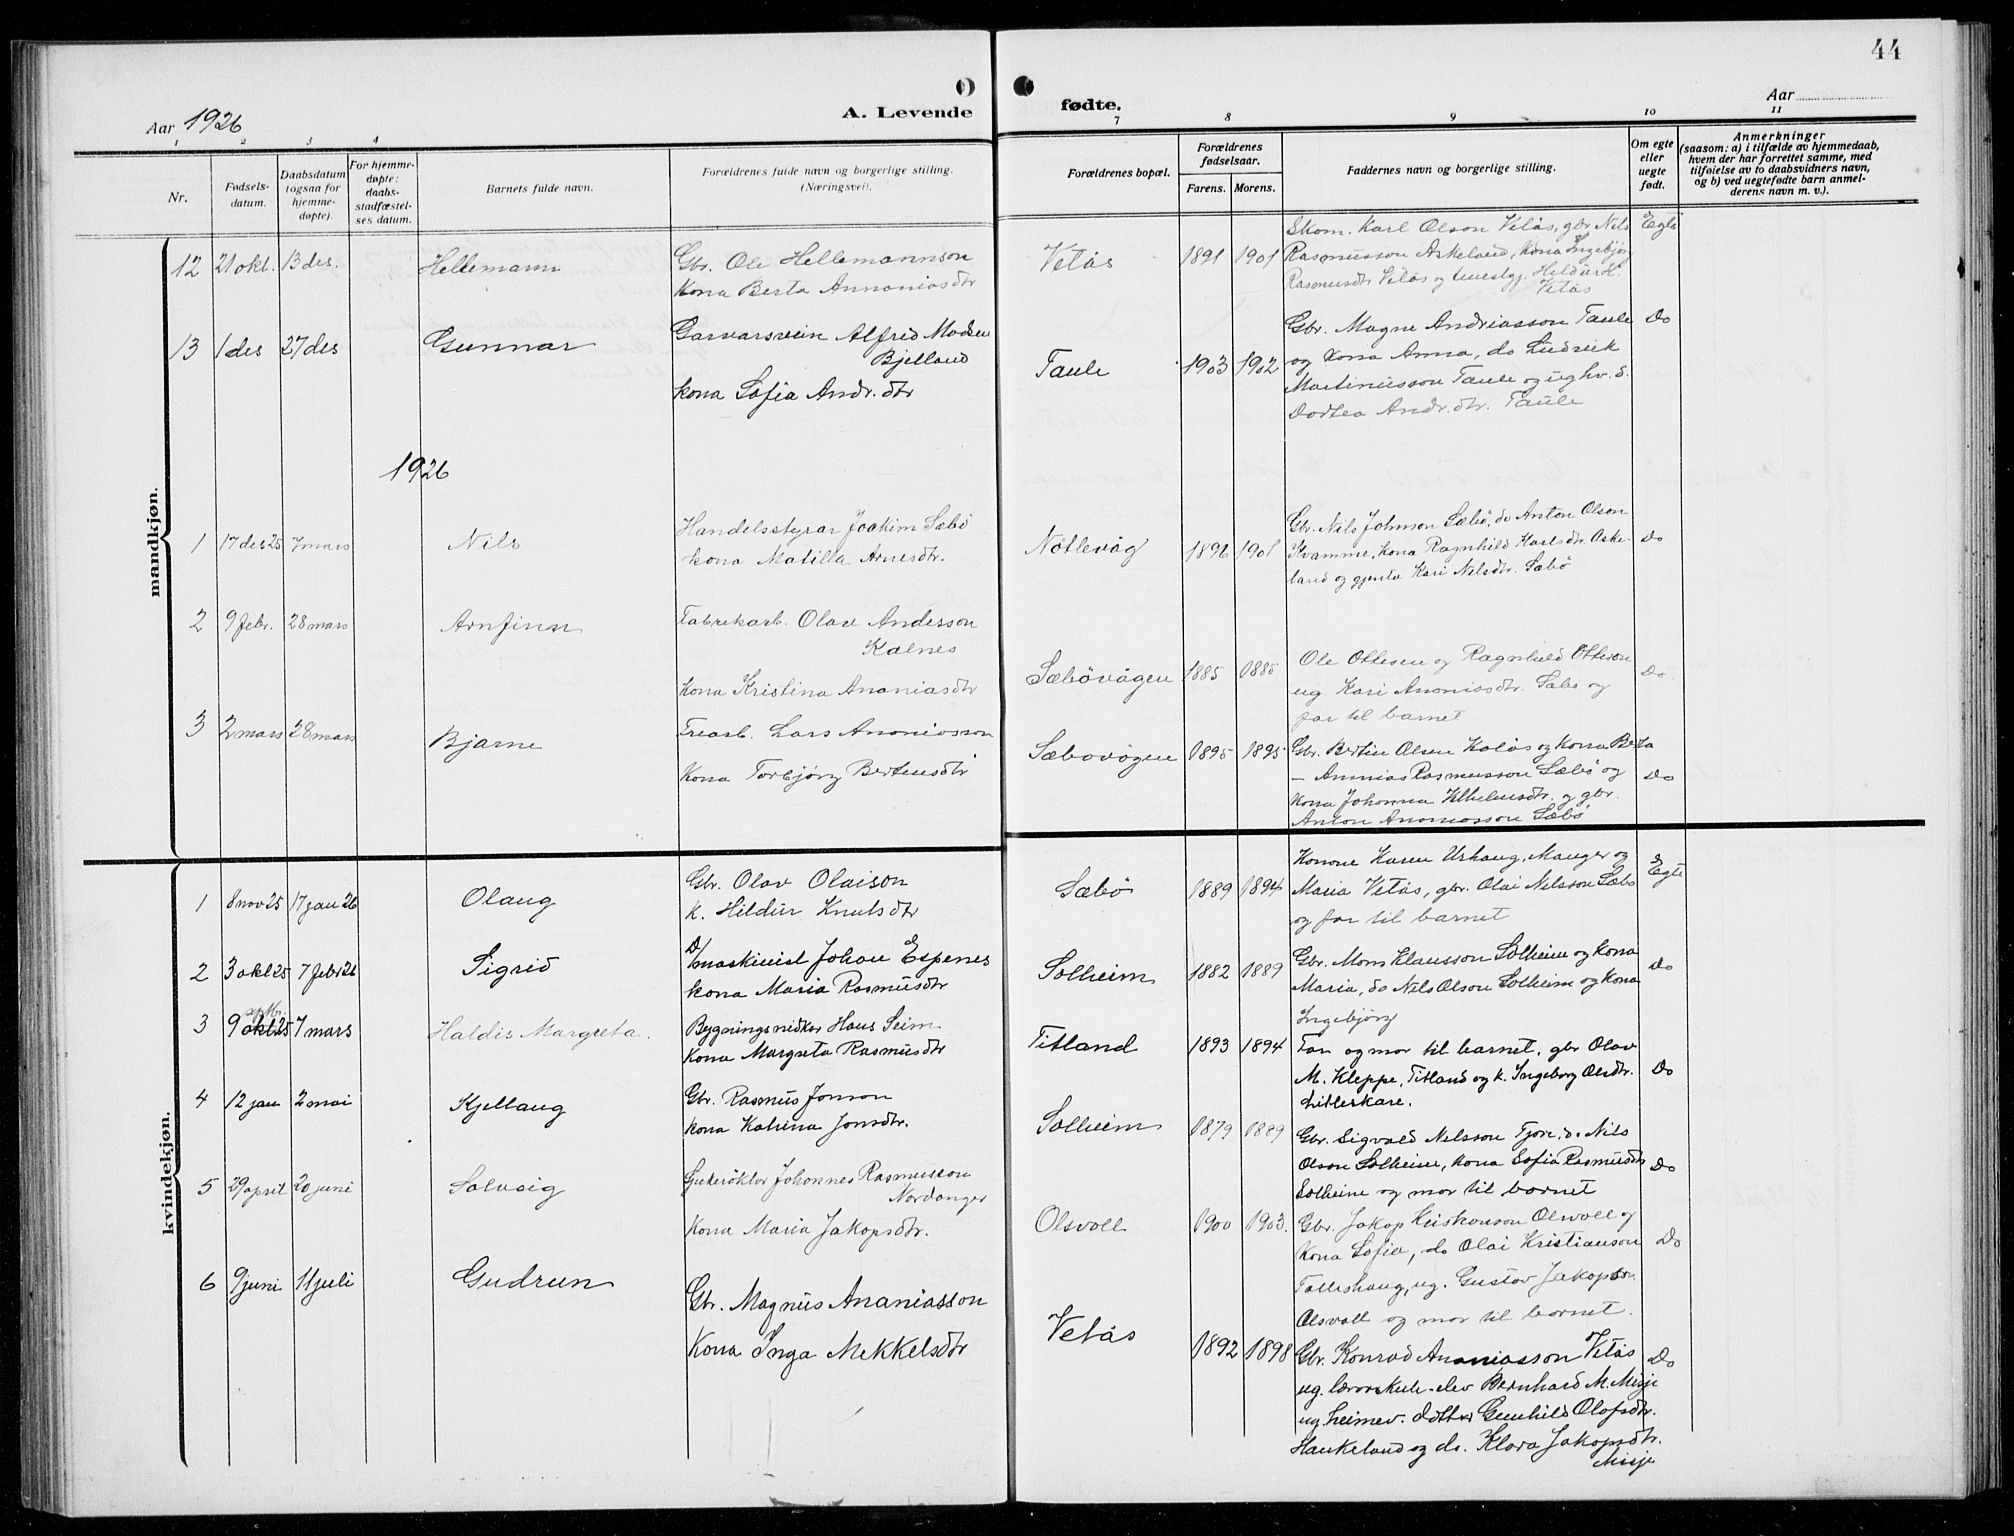 44
Aar 1926
A. Levende
fødte.
Aar
1 2 3 4
7 8 9 10 11
Nr.
Fødsels-
datum.
Daabsdatum
(ogsaa for
hjemme-
døpte).
For hjemme-
døpte:
daabs-
stadfæstel-
ses datum.
Barnets fulde navn.
Forældrenes fulde navn og borgerlige stilling.
(Næringsvei).
Forældrenes bopæl.
Forældrenes
fødselsaar.
Farens. Morens.
Faddernes navn og borgerlige stilling.
Om egte
eller
uegte
født.
Anmerkninger
(saasom: a) i tilfælde av hjemmedaab,
hvem der har forrettet samme, med
tilføielse av to daabsvidners navn,
og b) ved uegtefødte barn anmel-
derens navn m. v.).
mandkjøn.
12 21 okt. 13 des. Hellemann
Gbr. Ole Hellemannson
Kona Berta Annaniasdtr
Vetås 1891 1901
Skom. Karl Olson Vetås, gbr Nils
Rasmusson Askeland, Kona Ingebjörg
Rasmusdtr Vetås og Heldur H.
Vetås
Egte
13 1 des 27 des Gunnar
Garvarsvein Alfred Madsen
Bjelland
kona Sofia Andr.dtr
Taule 1903 1902
Gbr. Magne Andriasson Taule
og kona Anna, do Ludvik
Martinusson Taule og ug hv. d.
Dortea Andr.dtr. Taule
Do
1926
1 17 des 25 7 mars Nils
Handelsstyrar Joakim Sæbö
kona Matilla Arnesdtr.
Notlevåg 1896 1901
Gbr. Nils Johnson Sæbö, do Anton Olson
Kvamme, kona Ragnhild Karlsdtr. Aske-
land og gjenta Kari Nilsdtr. Sæbö
Do
2 9 febr. 28 mars Arnfinn
Fabrikarb. Olav Anderson
Kalnes
Kona Kristina Ananiasdtr
Sæbövågen 1885 1885
Ole Ottesen og Ragnhild Otteson
ug. Kari Ananiasdtr. Sæbö og
far til barnet
Do.
3 2 mars 28 mars Bjarne
Trearb. Lars Ananiasson
Kona Torbjörg Bertinsdtr
Sæbovågen 1895 1895
Gbr. Bertin Olsen Kalås og kona Berta
- Annias Rasmusson Sæbö og
kona Johanna Vilhelmsdtr. og gbr.
Anton Ananiasson Sæbö
Do
kvindekjøn.
1 8 nov 25 17 jan 26 Olaug
Gbr. Olav Olaison
k. Hildur Knutsdtr
Sæbö 1889 1894
Konone Karen Urhaug, Manger og
Maria Vetås, gbr. Olai Nilsson Sæbö
og far til barnet
Egte
2 3 okt 25 7 febr 26 Sigrid
D/maskinist Johan Espenes
kona Maria Rasmusdtr
Solheim 1882 1889
Gbr. Mons Klausson Solheim og kona
Maria, do Nils Olson Solheim og kona
Ingebjörg
Do
3 9 okt 25 7 mars Haldis Margreta.
Bygningsnidkar Hans Seim
Kona Margreta Rasmusdtr
Titland 1893 1894
Far og mor til barnet, gbr Olav
M. Kleppe, Titland og k. Ingeborg Olsdtr.
Litleskare.
Do
4 12 jan 2 mai Kjellaug
Gbr. Rasmus Jonson
kona Katrina Jonsdtr.
Solheim 1879 1889
Gbr. Sigvald Nelsson Fjore, do Nils
Olson Solheim, kona Sofia Rasmusdtr
Solheim og mor til barnet
Do
5 29 april 20 juni Solveig
Sjukerøktar Johannes Rasmusson
Nordanger
Kona Maria Jakopsdtr.
Olsvoll 1900 1903.
Gbr. Jakop Kristianson Olsvoll og
kona Sofia, do Olai Kristianson
Tolleshaug, ug. Gustav Jakopson
Olsvoll og mor til barnet.
Do
6 9 juni 11 juli Gudrun
Gbr. Magnus Ananiasson
Kona Inga Mekkelsdtr
Vetås 1892 1898
Gbr. Konrad Ananiasson Vetås
ug. lærarskule-elev Bernhard M. Misje
ug. heimev. dotter Gunhild Olofsdtr.
Haukeland og do. Klara Jakopsdtr.
Misje
Do